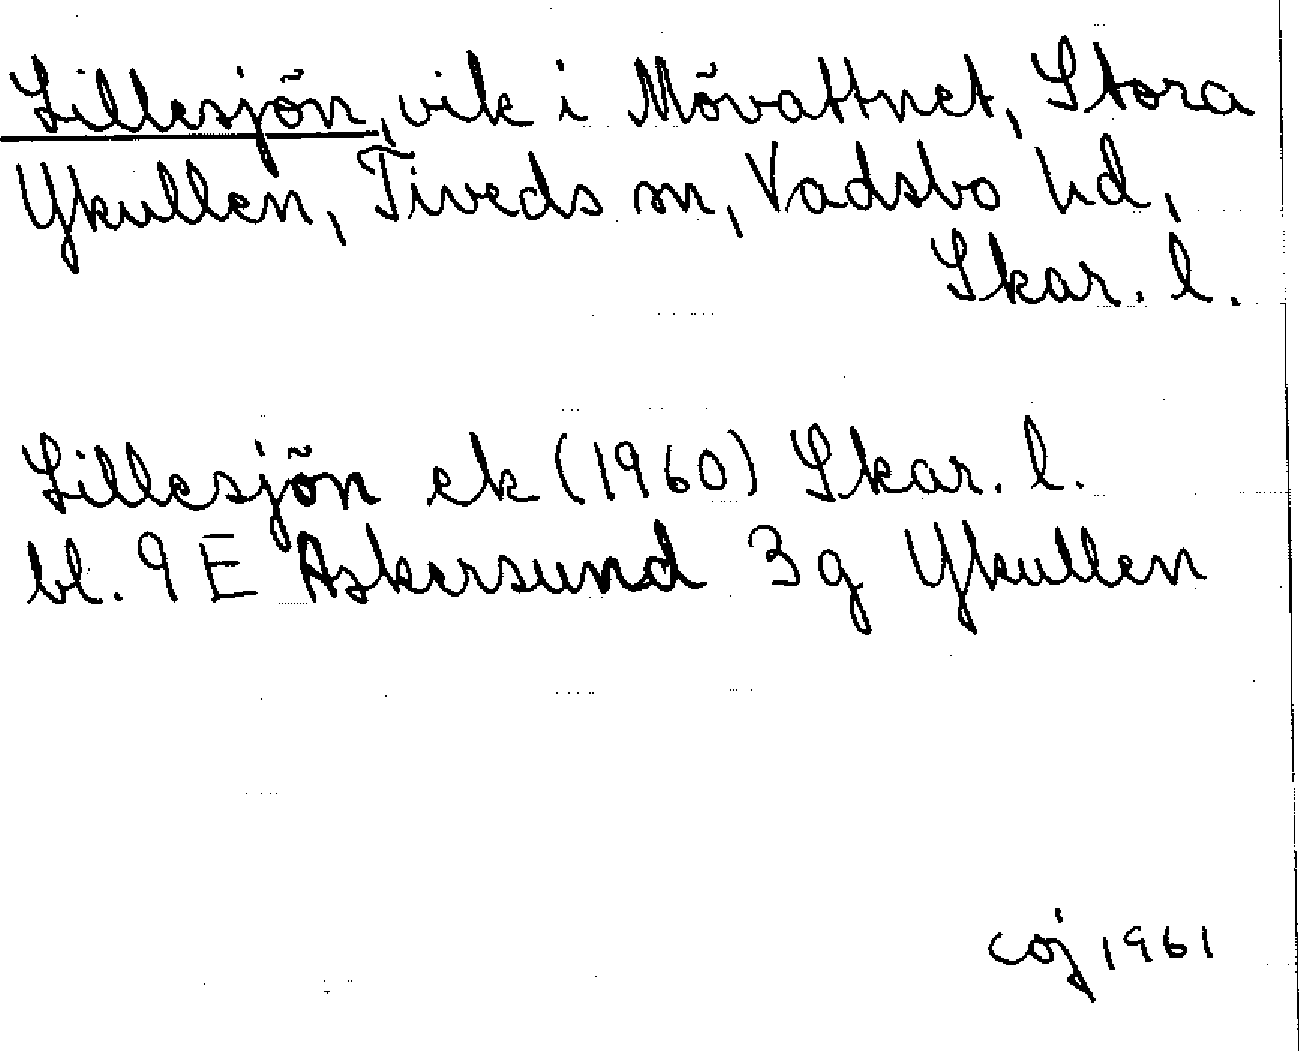 Lillesjön, vik i Mövattnet, Stora
Ykullen, Tiveds sn, Vadsbo hd,
Skar. l.
Lillesjön ek (1960) Skar. l.
bl. 9 E Askersund 3g Ykullen
coj 1961